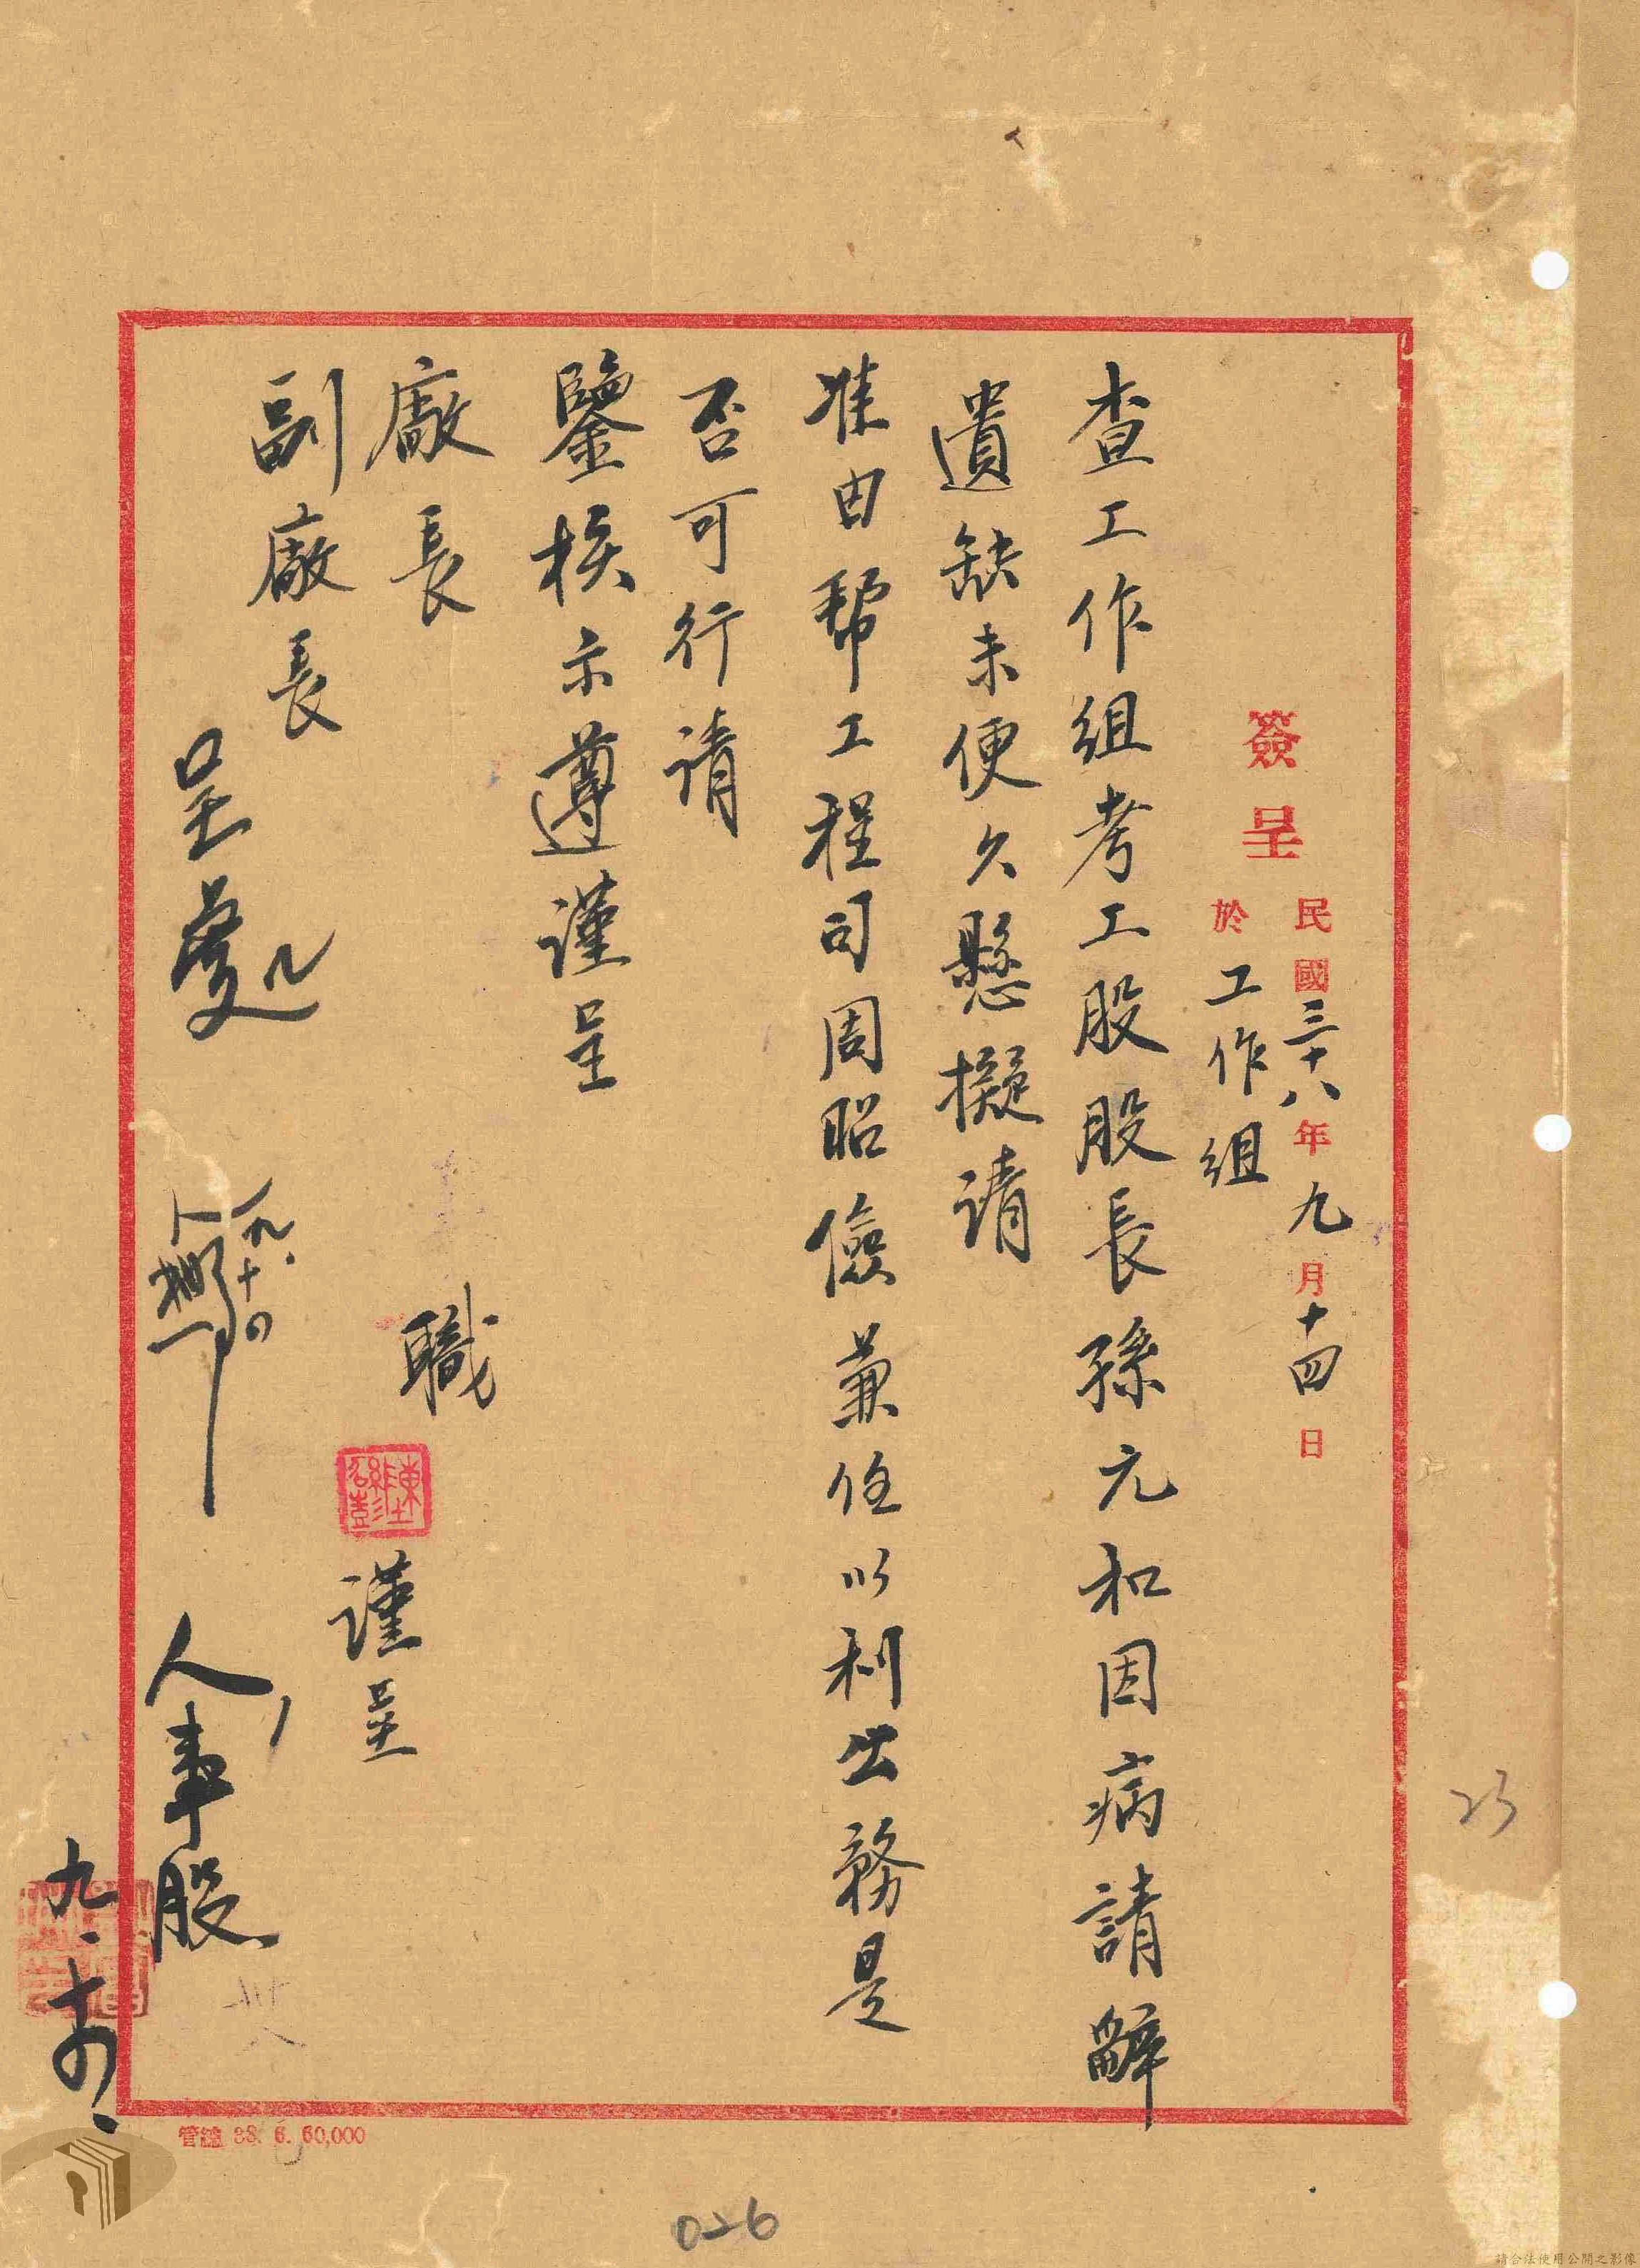 簽呈
民國三十八年九月十四日
於工作組
查工作組考工股股長孫元和因病請辭
遺缺未便久懸擬請
准由幫工程司周昭儉兼任以利出務是
否可行请
鑒核示遵謹呈
廠長
副廠長
職
謹呈
呈處
九.十四
人事股
九.十四.
管總 38. 6. 60,000
23
026
請合法使用公開之影像